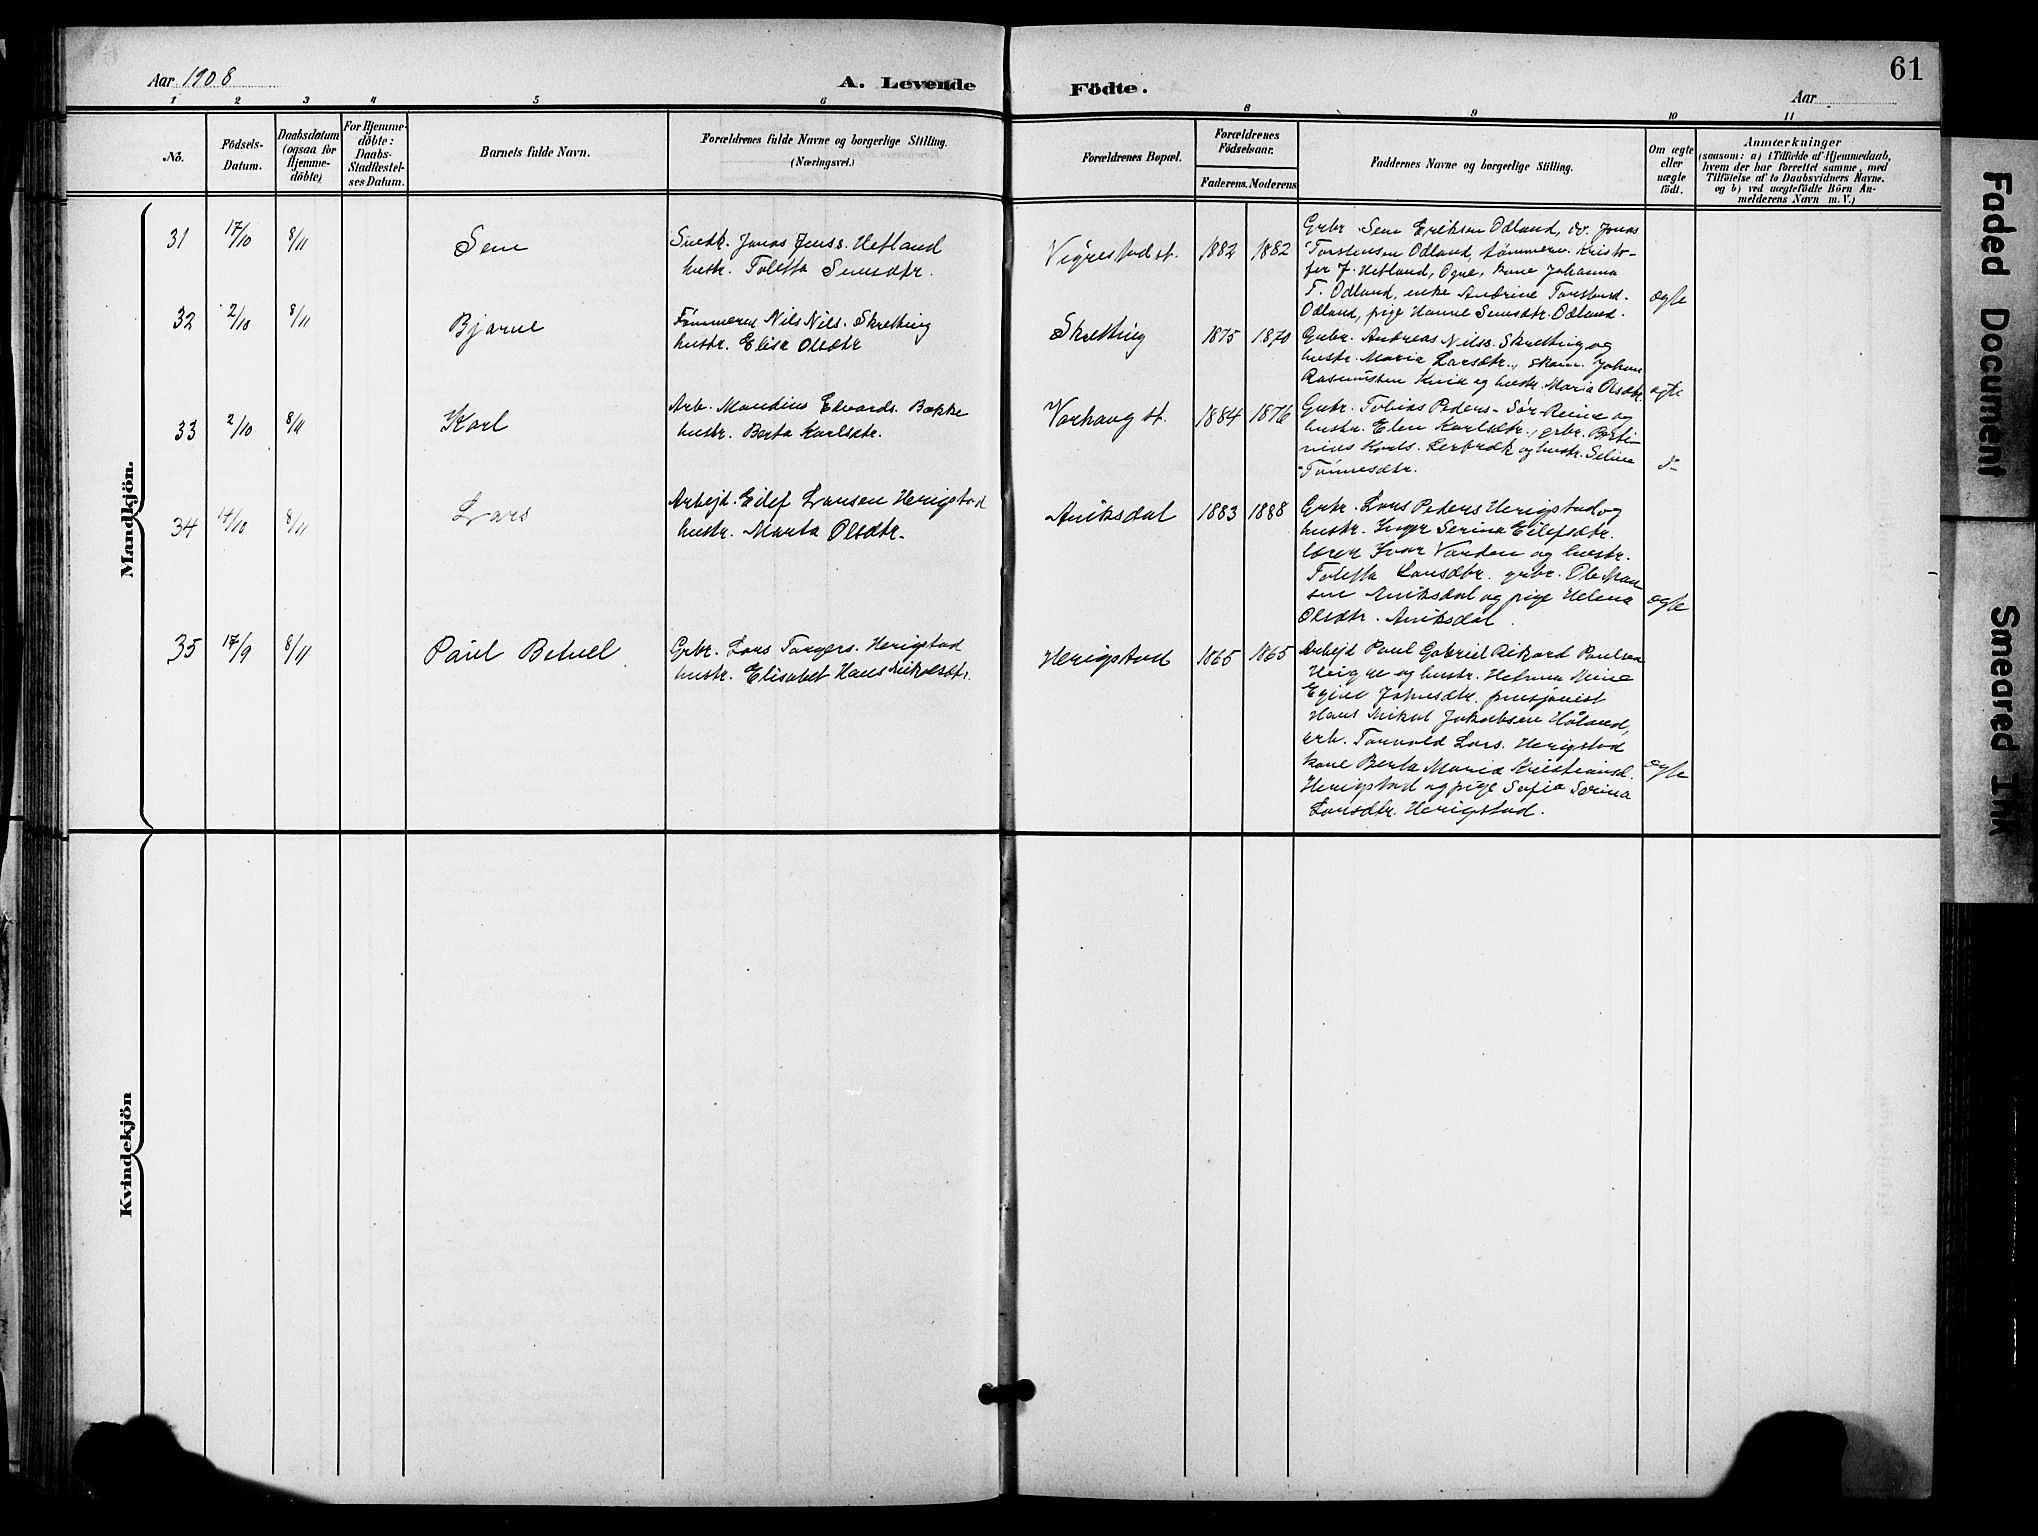 61
Aar 1908
A. Levende Födte.
Aar
1 2 3 4 5 6 8 9 10 11
No.
Födsels-
Datum.
Daabsdatum
(ogsaa for
Hjemme-
döbte)
For Hjemme-
döbte:
Daabs-
Stadfæstel-
ses Datum.
Barnets fulde Navn.
Forældrenes fulde Navne og borgerlige Stilling.
(Næringsvei.)
Forældrenes Bopæl.
Forældrenes
Födselsaar.
Faderens. Moderens.
Faddernes Navne og borgerlige Stilling.
Om ægte
eller
uægte
födt.
Anmærkninger
(saasom: a) i Tilfælde af Hjemmedaab,
hvem der har forrettet samme, med
Tilföielse af to Daabsvidners Navne.
og b) ved uægtefödte Börn An-
melderens Navn m. V.)
Mandkjön.
31 17/10 8/11 Sem
Snedk. Jonas Jens s. Hetland
hustr. Toletta Semsdtr.
Vigrestad st. 1882 1882
Grbr Sem Eriksen Odland, do. Jonas
Torstensen Odland, tømmerm. Kristo-
fer J. Hetland, Ogne, kone Johanna
T. Odland, enke Andrine Torstensd.
Odland, pige Hanne Semsdtr. Odland.
ægte
32 2/10 8/11 Bjarne
Tømmerm Nils Nils. Skretting
hustr. Elise Olsdtr
Skretting 1875 1870
Grbr. Andreas Nilss. Skretting og
hustr. Maria Larsdtr., skom. Johan
Rasmussen Kvia og hustr. Maria Olsdtr.
ægte
33 2/10 8/11 Karl
Arb. Maudius Edvards. Bække
hustr. Berta Karlsdtr.
Varhaug st. 1884 1876
Grbr. Tobias Peders- Sør-Reime og
hustr. Elen Karlsdtr., grbr. Berti-
nius Karls. Lerbræk og hustr. Seline
Tønnesdtr.
d-
34 14/10 8/11 Lars
Arbejd. Eilef Larsen Herigstad
hustr. Marta Olsdtr.
Aniksdal 1883 1888
Grbr. Lars Peders Herigstad og
hustr. Inger Serina Eilefsdtr.
lærer Ivar Varden og hustr.
Toletta Larsdtr. grbr. Ole Mau
sen Aniksdal og pige Helena
Olsdtr. Aniksdal.
ægte
35 17/9 8/11 Paul Betuel
Grbr. Lars Tangers. Herigstad
hustr. Elisabet Hans Mikalsdtr.
Herigstad 1865 1865
Arbejd Paul Gabriel Rikard Paulsen
Heigre og hustr. Helmina Mine
Egine Johnsdtr. pensjonist
Hans Mikal Jakobsen Håland,
arb. Torvald Lars. Herigstad
kone Berta Maria Kristiansd.
Herigstad og pige Sofie Serina
Larsdtr. Herigstad.
ægte
Kvindekjön
Faded Document
Smeared Ink